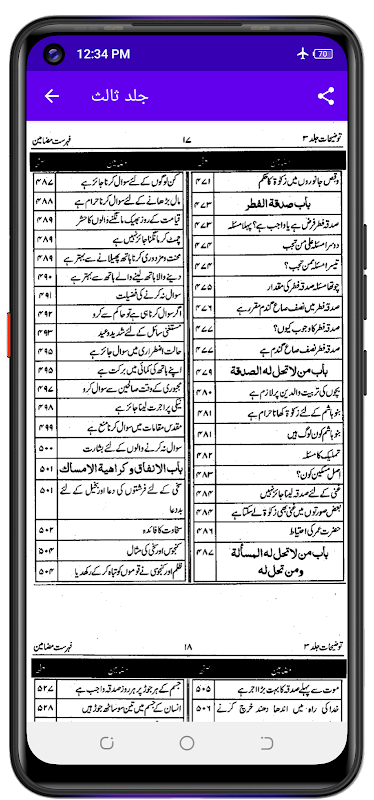 12:34 PM
70
جلد ثالث
توضیحات جلد ۳
۱۷
فہرست مضامین
مضامین
صفحہ
وقص جانوروں میں زکوٰۃ کا حکم
۴۷۱
باب صدقۃ الفطر
۴۷۳
صدقہ فطر فرض ہے یا واجب ہے؟ پہلا مسئلہ
۴۷۳
دوسرا مسئلہ علی من تجب
۴۷۴
تیسرا مسئلہ عمن تجب؟
۴۷۴
چوتھا مسئلہ صدقہ فطر کی مقدار
۴۷۵
صدقہ فطر میں نصف صاع گندم مقرر ہے
۴۷۶
صدقہ فطر کا وجوب کیوں؟
۴۷۷
صدقہ فطر نصف صاع گندم ہے
۴۷۷
باب من لا تحل له الصدقة
۴۷۹
بچوں کی تربیت والدین پر لازم ہے
۴۸۰
بنو ہاشم کے لئے زکوٰۃ کھانا حرام ہے
۴۸۱
بنو ہاشم کون لوگ ہیں
۴۸۱
تملیک کا مسئلہ
۴۸۲
اصل مسکین کون؟
۴۸۳
غنی کے لئے صدقہ لینا جائز نہیں
۴۸۴
بعض صورتوں میں غنی بھی زکوٰۃ لے سکتا ہے
۴۸۴
حضرت عمر کی احتیاط
۴۸۶
باب من لا تحل له المسألة
ومن تحل له
۴۸۷
مضامین
صفحہ
کن لوگوں کے لئے سوال کرنا جائز ہے
۴۸۷
مال بڑھانے کے لئے سوال کرنا حرام ہے
۴۸۸
قیامت کے روز بھیک مانگنے والوں کا حشر
۴۸۹
چمٹ کر مانگنا جائز نہیں ہے
۴۸۹
محنت ومزدوری کرنا ہاتھ پھیلانے سے بہتر ہے
۴۸۹
دینے والا ہاتھ لینے والے ہاتھ سے بہتر ہے
۴۹۰
سوال نہ کرنے کی فضیلت
۴۹۱
اگر سوال کرنا ہی ہے تو حاکم سے کرو
۴۹۲
مستغنی سائل کے لئے شدید وعید
۴۹۳
حالت اضطراری میں سوال جائز ہے
۴۹۵
اپنے ہاتھ کی کمائی میں برکت ہے
۴۹۶
مجبوری کے وقت صالحین سے سوال کرو
۴۹۷
نیکی پر اجرت لینا جائز ہے
۴۹۸
مقدس مقامات میں سوال کرنا منع ہے
۴۹۹
سوال نہ کرنے والوں کے لئے بشارت
۵۰۰
باب الانفاق وکراهیة الامساک
۵۰۱
سخی کے لئے فرشتوں کی دعا اور بخیل کے لئے
بددعا
۵۰۱
سخاوت کا فائدہ
۵۰۲
کنجوس اور سخی کی مثال
۵۰۴
ظلم اور کنجوسی نے قوموں کو تباہ کر کے رکھ دیا
۵۰۴
توضیحات جلد ۳
۱۸
فہرست مضامین
مضامین
صفحہ
موت سے پہلے صدقہ کا بہت بڑا اجر ہے
۵۰۵
خدا کی راہ میں اندھا دھند خرچ کرنے
۵۰۶
مضامین
صفحہ
جسم کے ہر جوڑ پر ہر روز صدقہ واجب ہے
۵۲۷
انسان کے جسم میں تین سو ساٹھ جوڑ ہیں
۵۲۸